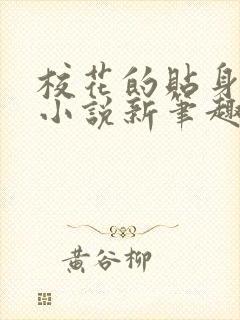 校花的贴身
小说新笔趣
黄谷柳